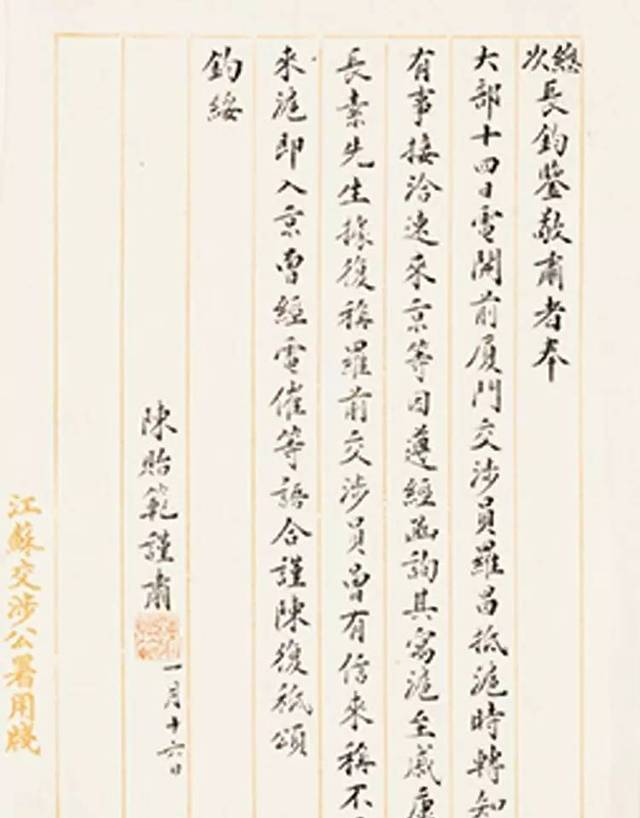 總次長鈞鑒敬肅者奉
大部十四日電開前厦門交涉員羅昌抵滬時轉知
有事接洽速來京等因遵經函詢其寓滬至戚康
長素先生據復稱羅前交涉員曾有信來稱不
來滬即入京曾經電催等語合謹陳復祗頌
鈞綏
陳貽範謹肅
一月十六日
江蘇交涉公署用牋